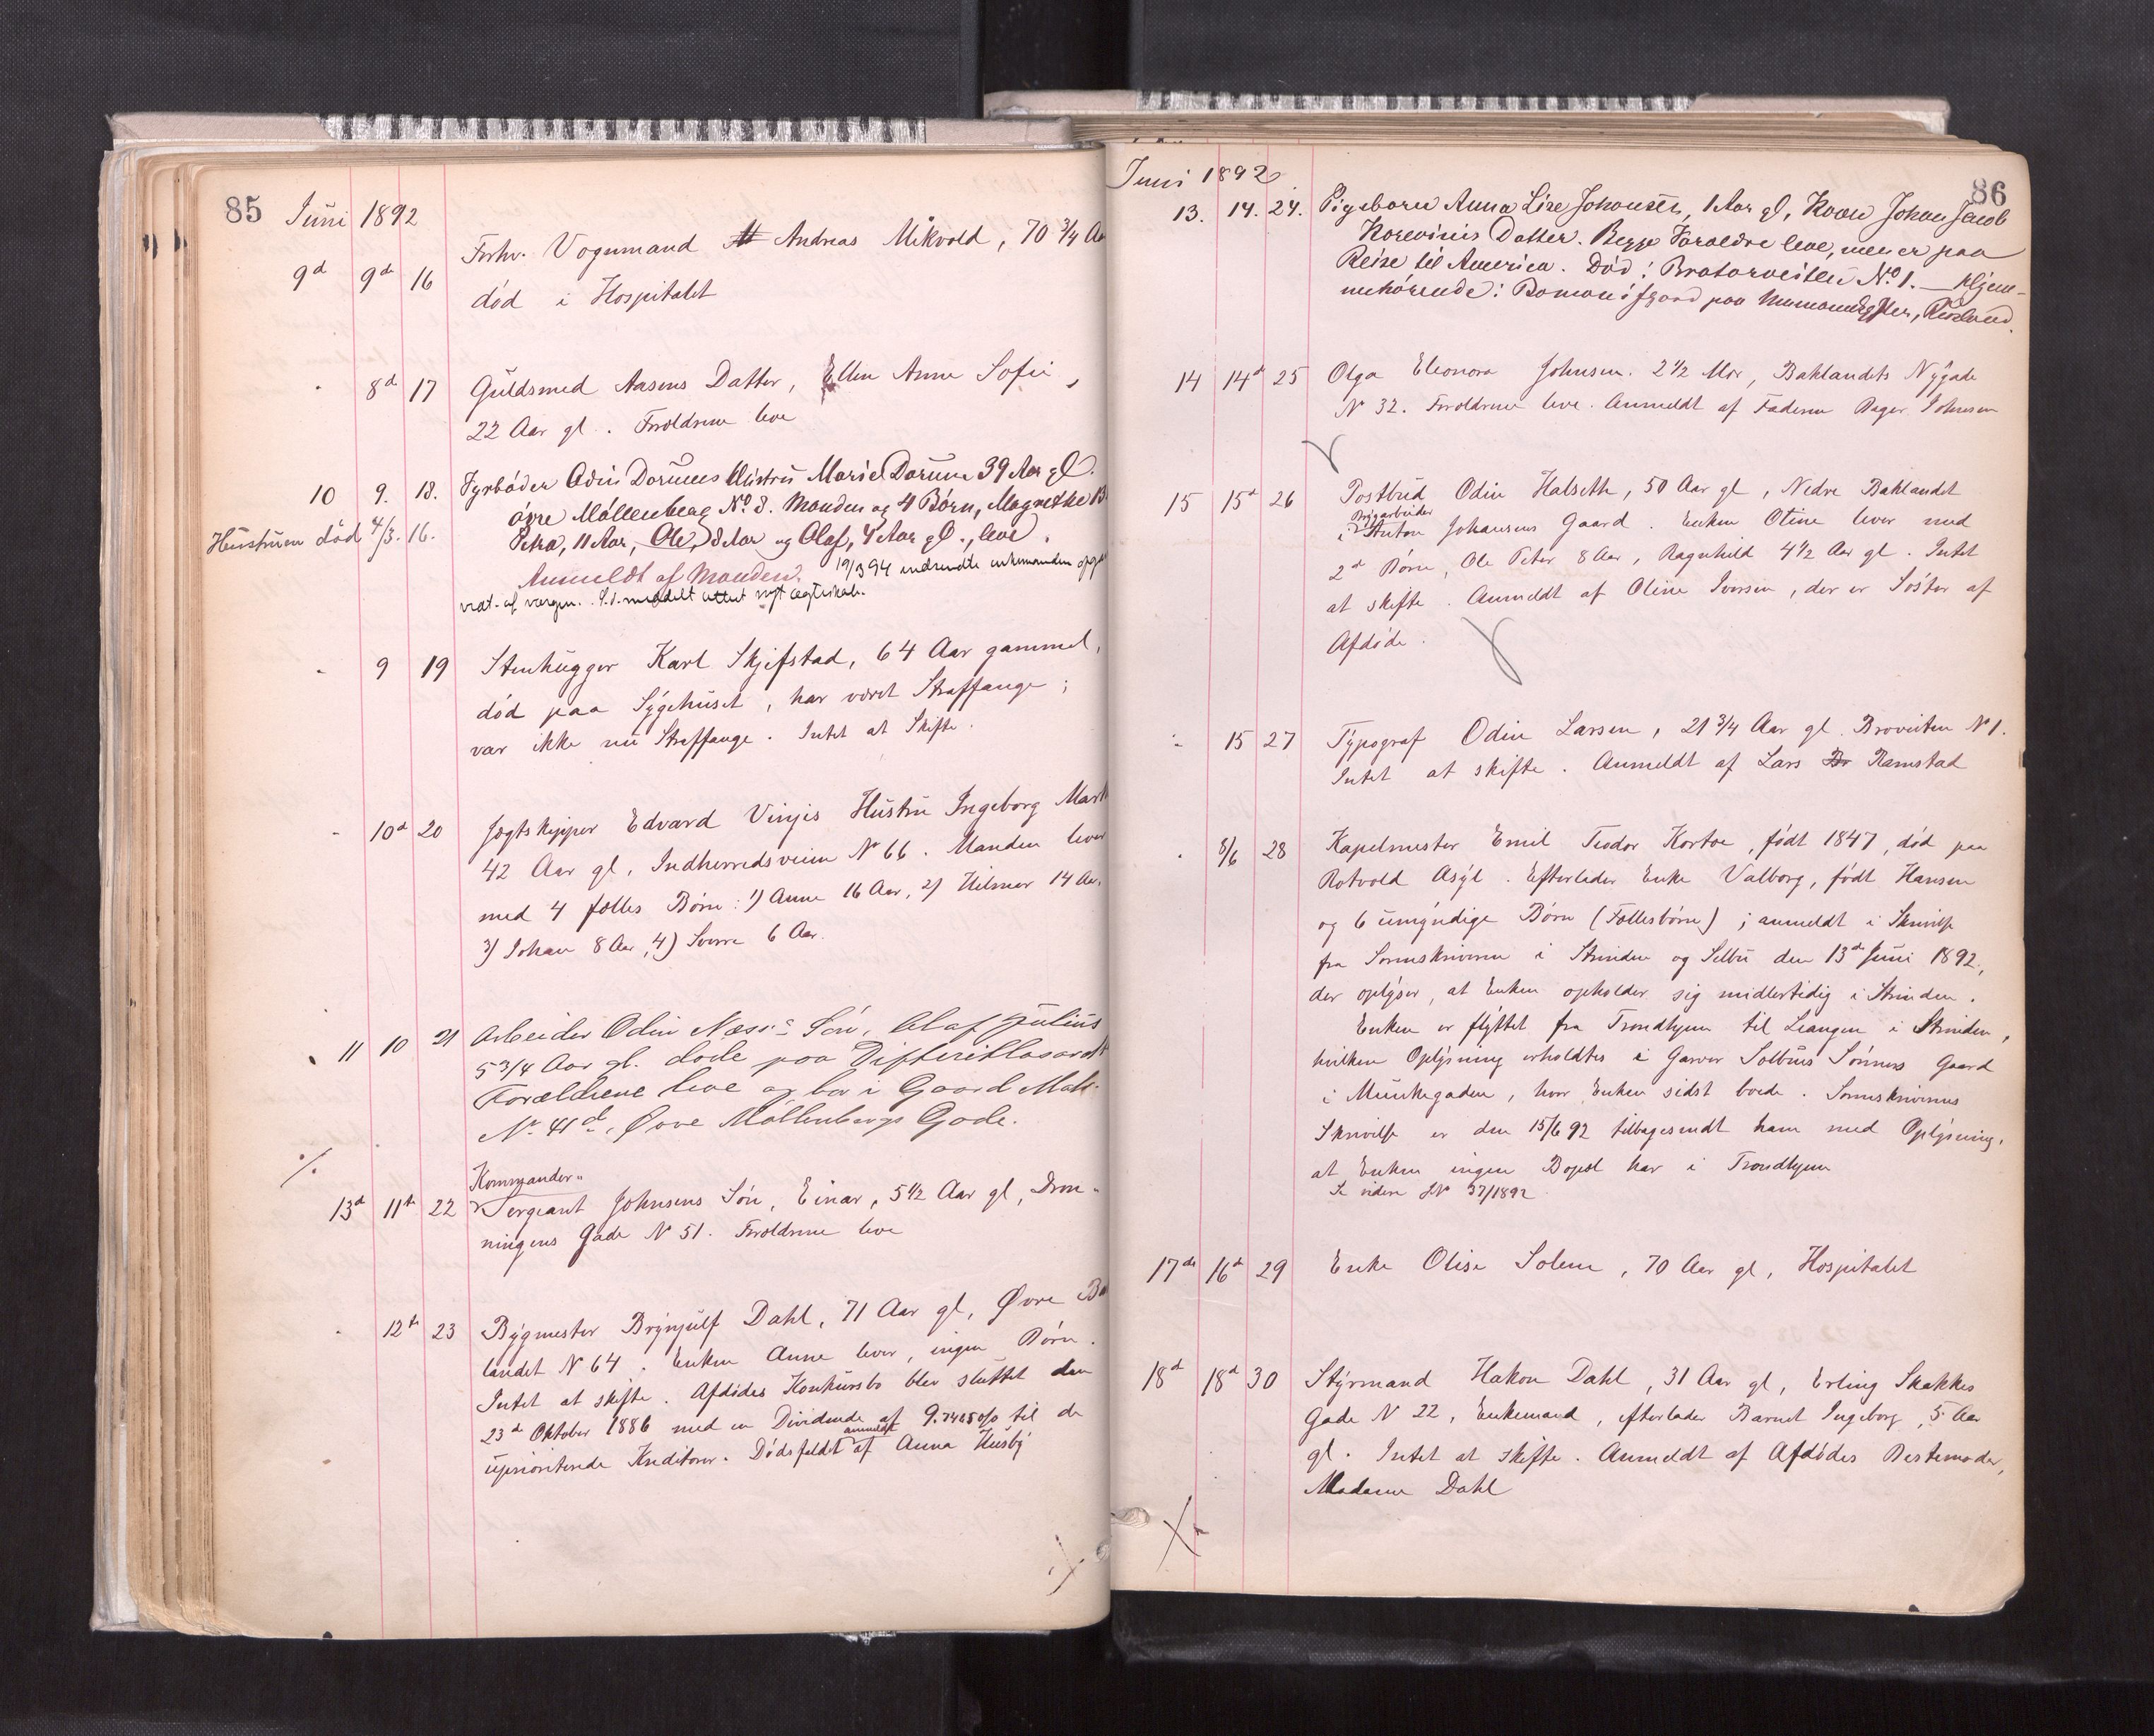 85 Juni 1892
Forhv. Vognmand Andreas Mikvold, 70 3/4 Aa
9d 9d 16
død i Hospitalet
" 8d 17 Guldsmed Aasens Datter, Ellen Anne Sofie,
22 Aar gl. Forældrene leve
10 9. 18. Fyrbøder Odin Dorums Hustru Marie Dorum 39 Aar gl.
øvre Møllenberg No 8. Manden og 4 Børn, Magnethe 13
Hustruen død 4/3. 16. Petra, 11 Aar, Ole, 8 Aar og Olaf, 4 Aar gl., leve.
Anmeldt af Manden. 19/3 94 indsendte enkemanden
vedt. af værgen. S.d. meddelt attest nyt ægteskab.
- 9 19 Stenhugger Karl Skjefstad, 64 Aar gammel,
død paa Sygehuset, har været Straffange;
var ikke nu Straffange. Intet at Skifte.
- 10d 20 Jægtskipper Edvard Vinjes Hustru Ingeborg Mart
42 Aar gl, Indherredsveien No 66. Manden lever
med 4 fælles Børn: 1) Anne 16 Aar, 2) Hilmar 14 Aar,
3) Johan 8 Aar, 4) Sverre 6 Aar.
11 10 21 Arbeider Odin Næss's Søn, Olaf Julius
5 3/4 Aar gl. døde paa Difteritlasarett
Forældrene leve og bor i Gaard Matr.
No 41d, Øvre Møllenbergs Gade.
%
Kommander"
13d 11te 22 Sergeant Johnsens Søn, Einar, 5 1/2 Aar gl, Dron-
ningens Gade No 51. Forældrene leve
- 12te 23 Bygmester Brynjulf Dahl, 71 Aar gl, Øvre Ba
landet No 64. Enken Anne lever, ingen Børn.
Intet at skifte. Afdødes Konkursbo blev sluttet den
23de Oktober 1886 med en Dividende af 9.7425 % til de
uprioriterede Kreditorer. Dødsfaldet anmeldt af Anna Husby
Juni 1892 86
13. 14. 24. Pigebarn Anna Lise Johansen, 1 Aar gl, Kvæn Johan Jacob
Korevinis Datter. Begge Foræledre leve, men er paa
Reise til America. Død: Bratørveiten No 1. – Hjem-
mehørende: i
14 14d 25 Olga Eleonora Johnsen. 2 1/2 Mdr, Baklandets Nygade
No 32. Forældrene leve. Anmeldt af Faderen Bager Johnsen
15 15d 26 Postbud Odin Halseth, 50 Aar gl, Nedre Baklandet
Brygarbeider
i Anton Johansens Gaard. Enken Otine lever med
2de Børn, Ole Peter 8 Aar, Ragnhild 4 1/2 Aar gl. Intet
at skifte. Anmeldt af Oline Iversen, der er Søster af
Afdøde.
" 15 27 Typograf Odin Larsen, 21 3/4 Aar gl. Broveiten No 1.
Intet at skifte. Anmeldt af Lars Ramstad
" 8/6 28 Kapelmester Emil Teodor Kortoe, født 1847, død paa
Rotvold Asyl. Efterlader Enke Valborg, født Hansen
og 6 umyndige Børn (Fællesbørn); anmeldt i Skrivelse
fra Sorenskriveren i Strinden og Selbu den 13de Juni 1892,
der oplyser, at Enken opholder sig midlertidig i Strinden.
Enken er flyttet fra Trondhjem til Leangen i Strinden,
hvilken Oplysning erholdtes i Garver Solbus Sønners Gaard
i Munkegaden, hvor Enken sidst boede. Sorenskriverens
Skrivelse er den 15/6 92 tilbagesendt ham med Oplysning,
at Enken ingen Bopæl har i Trondhjem
Se videre LN 37/1892
17de 16d 29 Enke Olise Solem, 70 Aar gl, Hospitalet
18d 18d 30 Styrmand Hakon Dahl, 31 Aar gl, Erling Skakkes
Gade No 22, Enkemand, efterlader Barnet Ingeborg, 5 Aar
gl. Intet at skifte. Anmeldt af Afdødes Bestemoder,
Madame Dahl